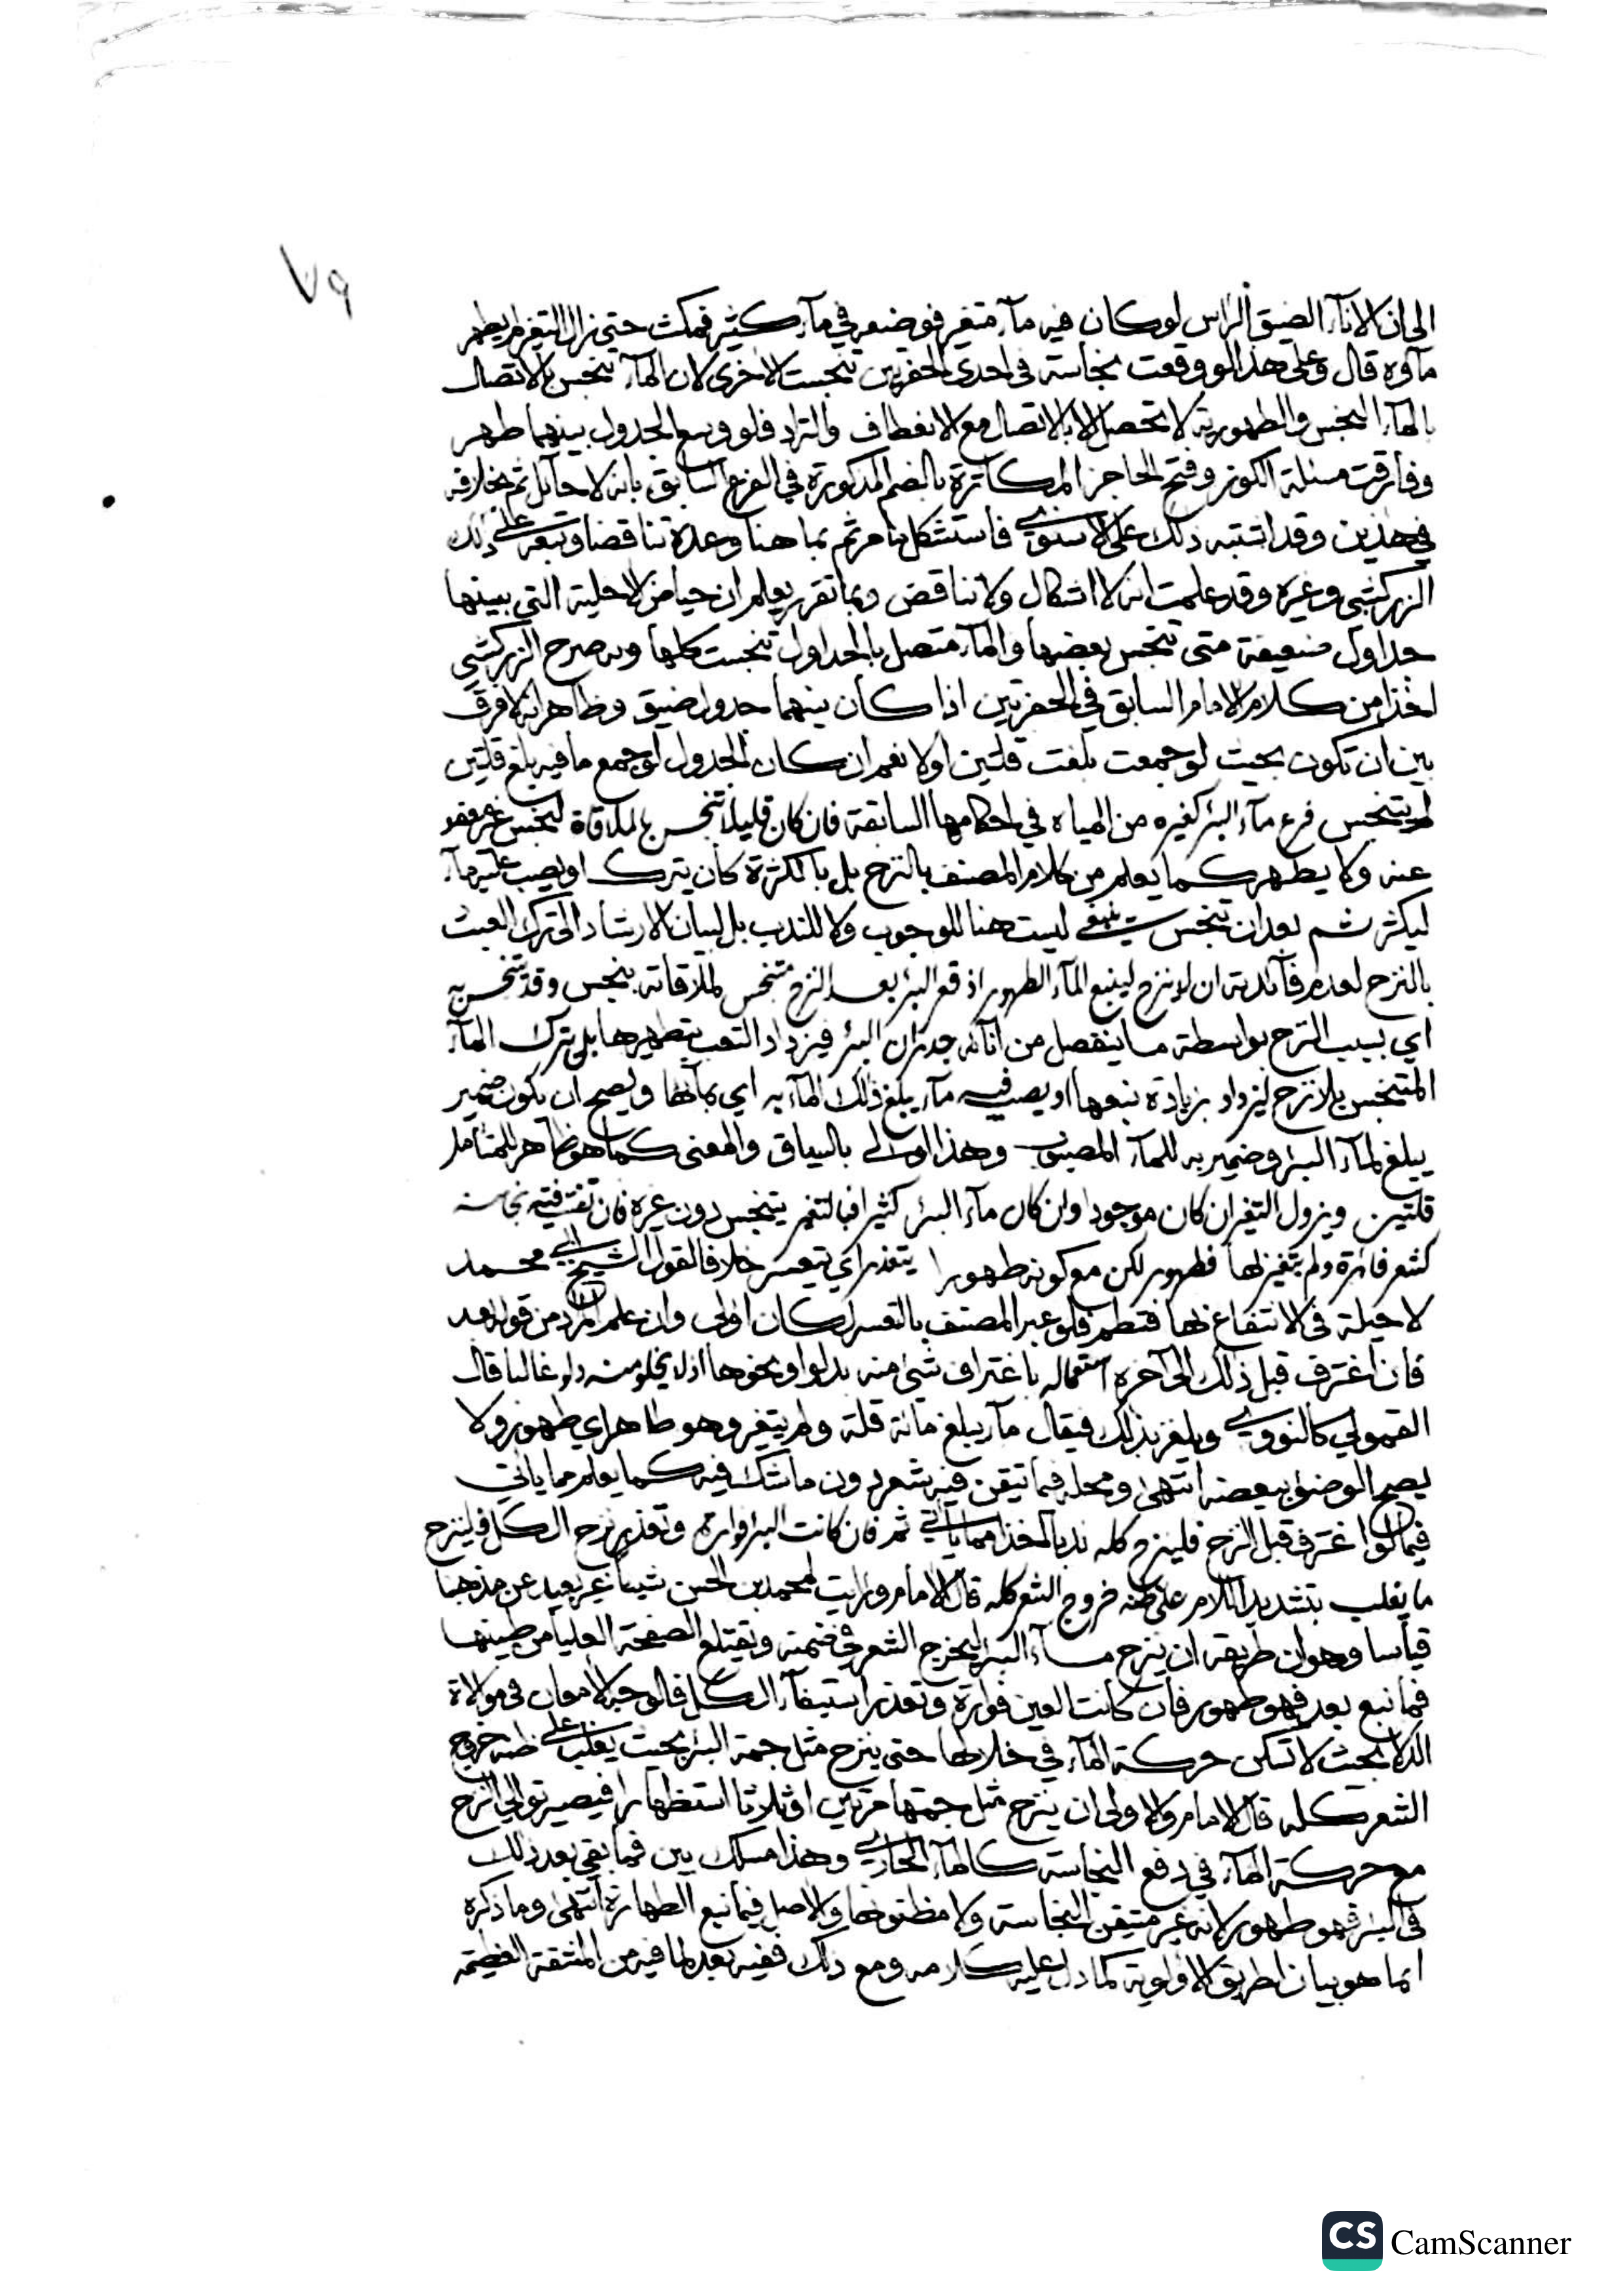 ٧٩
الى ان الانآء الضيق الراس لو كان فيه مآء متغير فوضعه في مآء كثير فمكث حتى زال التغير لم يطهر
مآوه قال وعلى هذا لو وقعت نجاسة في احدى الحفرتين تنجست الاخرى لان المآء تنجس بالاتصال
بالمآء النجس والطهورية لا تحصل الا بالاتصال مع الانعطاف والتراد فلو وسع الجدول بينهما طهر
وفارقت مسئلة الكوز وفتح الحاجز المكاثرة بالضم المذكورة في الفرع السابق بانه لا حآئل ثم بخلافه
في هذين وقد اشتبه ذلك على الاسنوي فاستشكل ما مر ثم بما هنا وعده تناقضا وتبعه على ذلك
الزركشي وغيره وقد علمت انه لا اشكال ولا تناقض وبما تقرر يعلم ان حياض الاخلية التي بينها
جداول ضعيفة متى تنجس بعضها والمآء متصل بالجداول تنجست كلها وبه صرح الزركشي
اخذا من كلام الامام السابق في الحفرتين اذا كان بينهما جدول ضيق وظاهره انه لا فرق
بين ان تكون بحيث لو جمعت بلغت قلتين او لا نعم ان كان الجدول لو جمع ما فيه بلغ قلتين
لم يتنجس فرع مآء البئر كغيره من المياه في احكامها السابقة فان كان قليلا تنجس بملاقاة نجس غير معفو
عنه ولا يطهر كما يعلم من كلام المصنف بالنزح بل بالكثرة كان يترك او يصب عليه مآء
ليكثر ثم بعد ان تنجس ينبغي ليست هنا للوجوب ولا للندب بل لبيان الارشاد الى ترك العبث
بالنزح لعدم فآئدته ان لا ينزح لينبع المآء الطهور اذ قعر البئر بعد النزح متنجس لملاقاته بنجس وقد تنجس به
اي بسبب النزح بواسطة ما ينفصل من انآئه جدران البئر فيزداد التعب بتطهيرها بل يترك المآء
المتنجس بلا نزح ليزداد بزيادة نبعها او يصب فيه مآء يبلغ ذلك المآء به اي بمآئها ويصح ان يكون ضمير
يبلغ لمآء البئر وضمير به للمآء المصبوب وهذا اولى بالسياق والمعنى كما هو ظاهر للمتامل
قلتين ويزول التغير ان كان موجودا وان كان مآء البئر كثيرا فبالتغير يتنجس دون غيره فان تفتتت فيه نجاسة
كشعر فائرة ولم يتغير لها فطهور لكن مع كونه طهورا يتعذر اي يتعسر خلافا لقول الشيخ ابي محمد
لا حيلة في الانتفاع بها فتطم فلو عبر المصنف بالتعسر لكان اولى وان علم المراد من قوله بعد
فان اغترف قبل ذلك الى آخره استعماله باغتراف شئ منه بدلو او نحوها اذ لا يخلو منه دلو غالبا قال
القمولي كالنووي ويلغز بذلك فيقال مآء يبلغ مائة قلة ولم يتغير وهو طاهر اي طهور ولا
يصح الوضوء ببعضه انتهى ومحله فيما تيقن فيه شعر دون ما شك فيه كما يعلم مما ياتي
فيما لو اغترف قبل النزح فلينزح كله ندبا اخذا مما ياتي ثم فان كانت البئر فوارة وتعذر نزح الكل فلينزح
ما يغلب بتشديد اللام على ظنه خروج الشعر كله قال الامام ورايت لمحمد بن الحسن شيئا غير بعيد عن مذهبنا
قياسا وهو ان طريقه ان ينزح مآء البئر ليخرج الشعر في ضمنه وتقتلع الصفحة العليا من طينها
فما نبع بعد فهو طهور فان كانت العين فوارة وتعذر استيفآء الكل فالوجه الامعان في موالاة
الدلاء بحيث لا تسكن حركة المآء في خلالها حتى ينزح مثل جمة البئر بحيث يغلب على ظنه خروج
الشعر كله قال الامام والاولى ان ينزح مثل جمتها مرتين او ثلاثا استظهارا فيصير توالي النزح
مع حركة المآء في دفع النجاسة كالمآء الجاري وهذا مسلك بين فما بقي بعد ذلك
في البئر فهو طهور لانه غير متيقن النجاسة ولا مظنونها والاصل فيما نبع الطهارة انتهى وما ذكره
انما هو بيان لطريق الاولوية كما دل عليه كلامه ومع ذلك ففيه بعد لما فيه من المشقة العظيمة
CamScanner